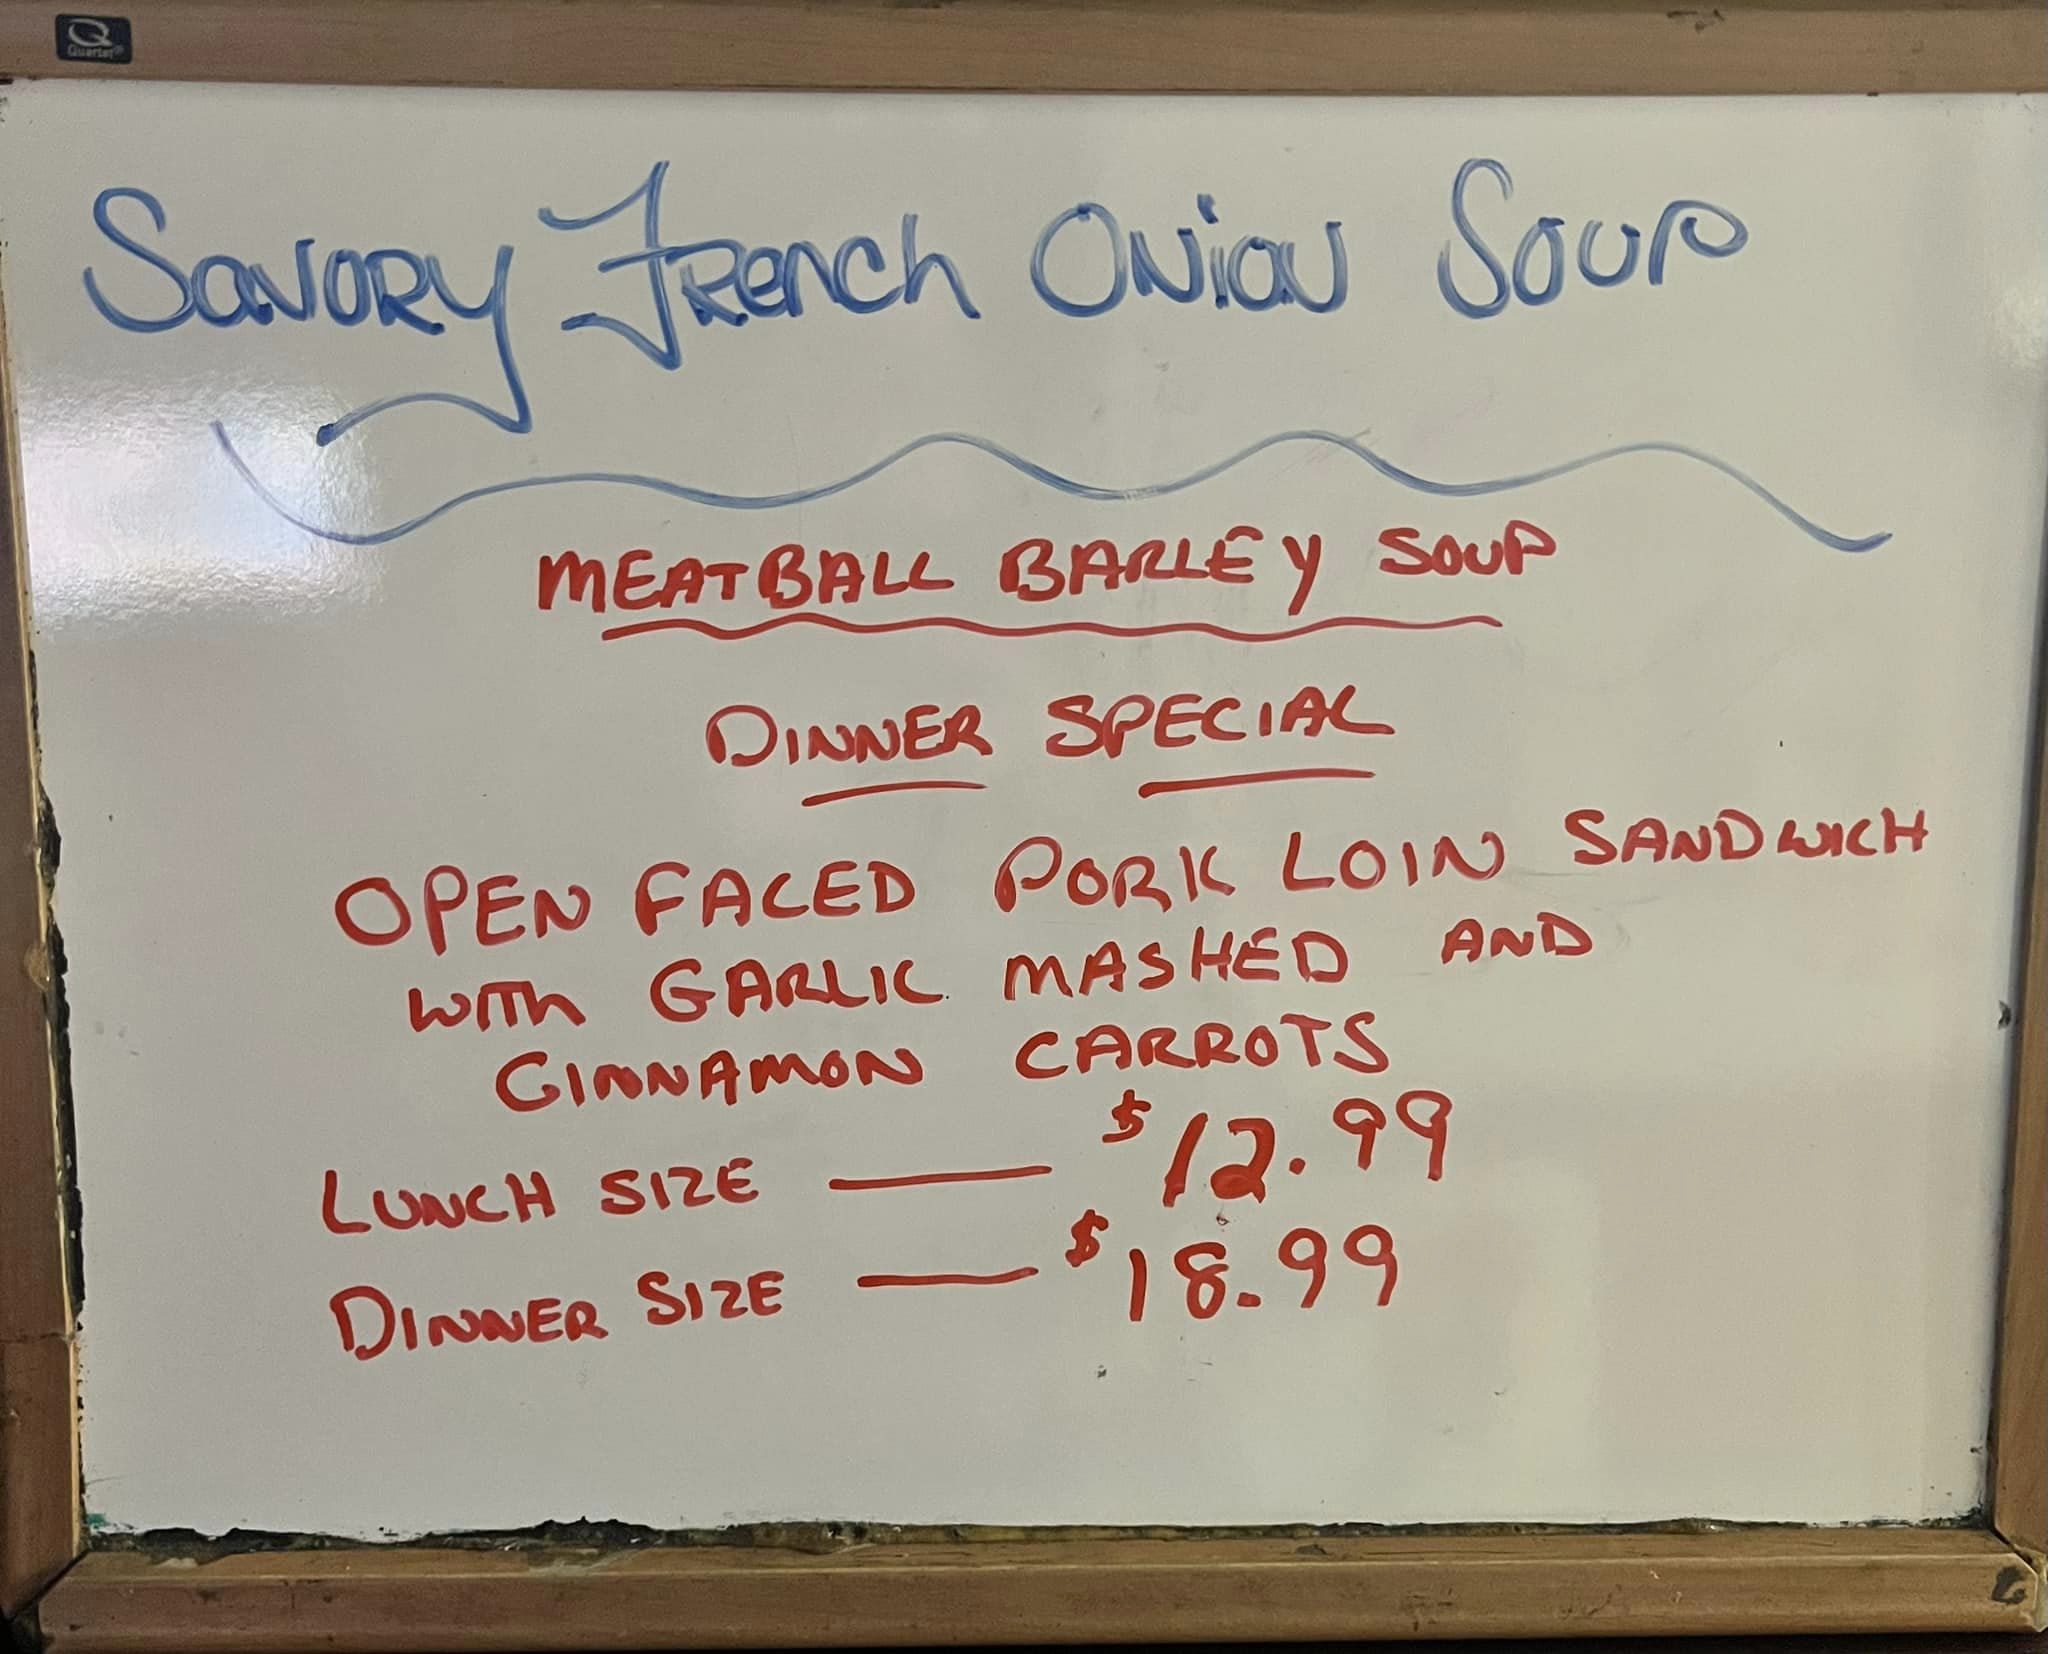 Q
Quartet®
Savory French Onion Soup
MEATBALL BARLEY SOUP
DINNER SPECIAL
OPEN FACED PORK LOIN SANDWICH
WITH GARLIC MASHED AND
CINNAMON CARROTS
LUNCH SIZE — $12.99
DINNER SIZE — $18.99